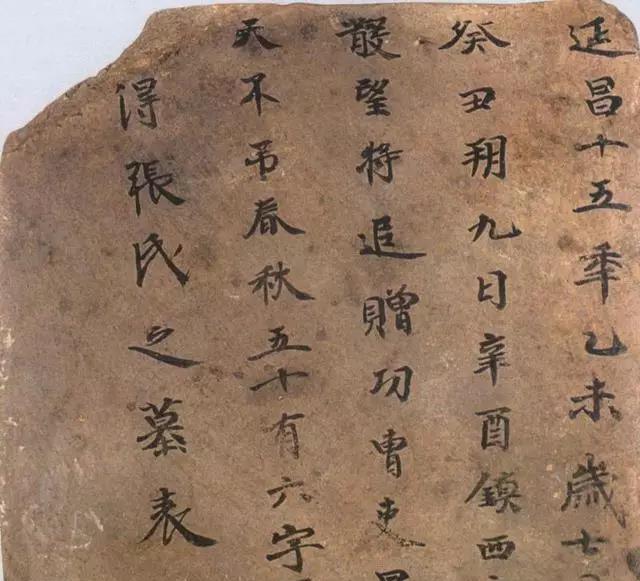 延昌十五秊乙未歲十
癸丑朔九日辛酉鎮西
散望将追贈功曹吏
天不吊春秋五十有六字
得張氏之墓表